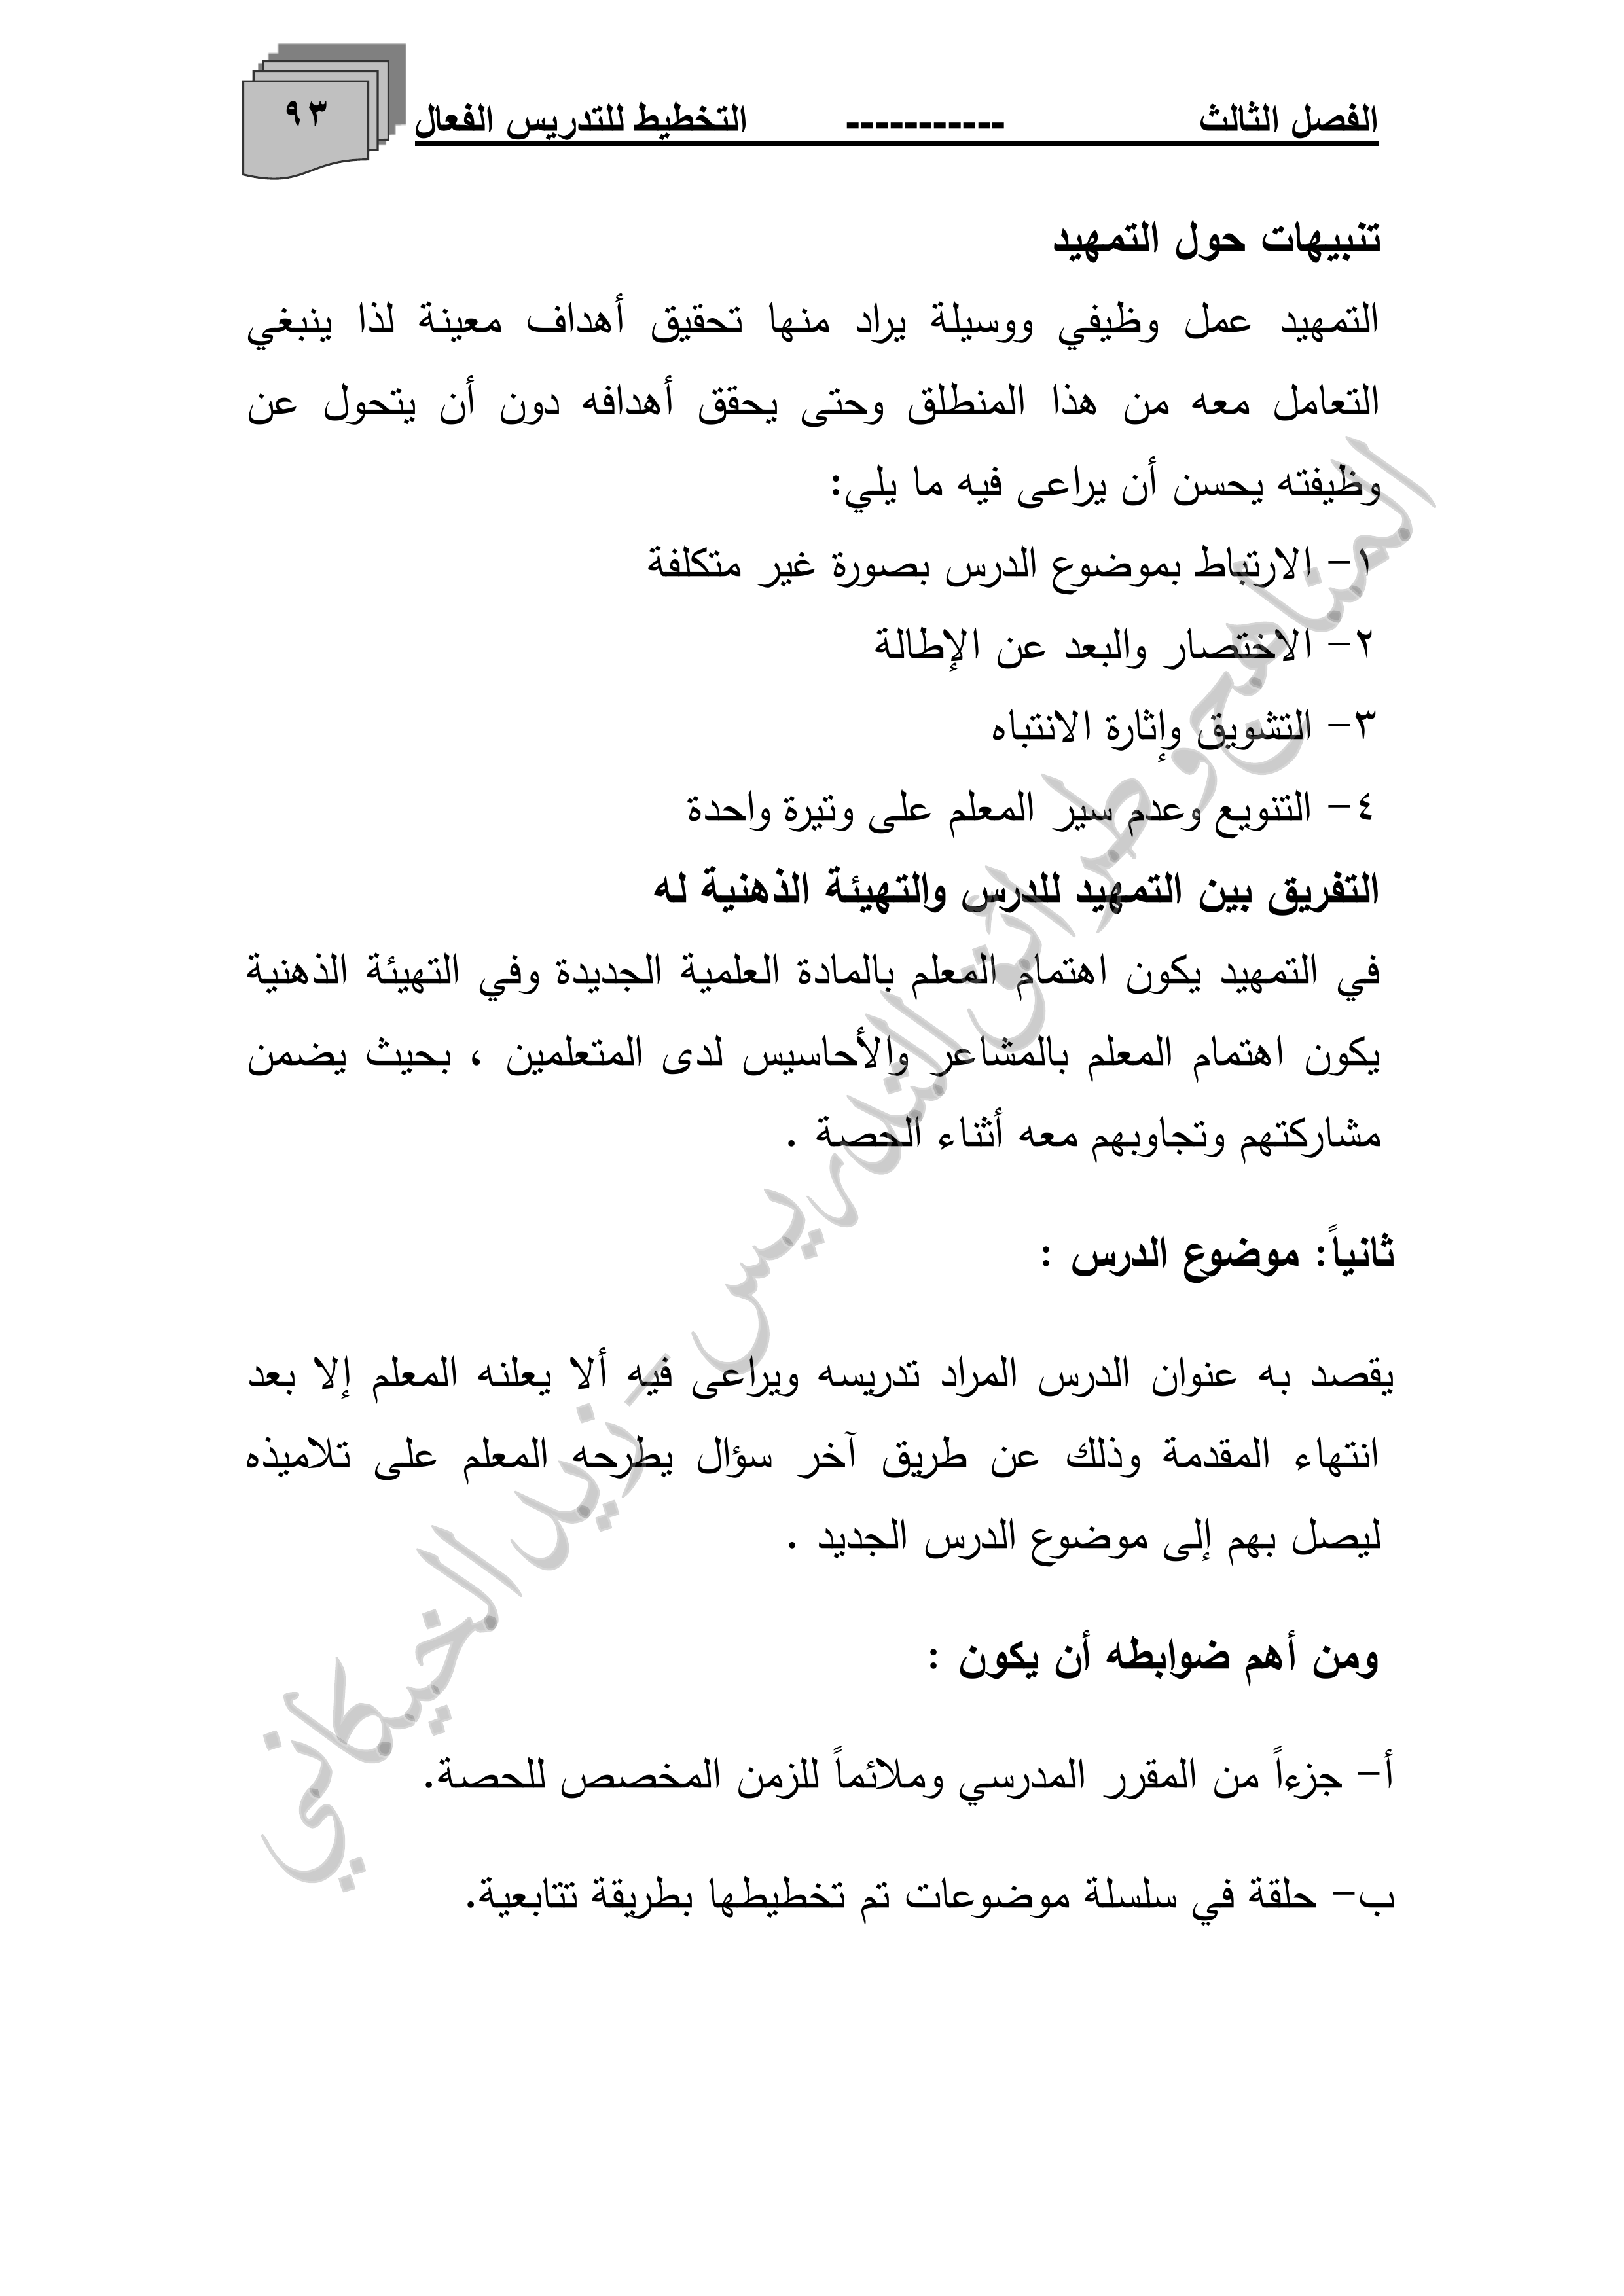 الفصل الثالث ----------- التخطيط للتدريس الفعال
٩٣
تنبيهات حول التمهيد
التمهيد عمل وظيفي ووسيلة يراد منها تحقيق أهداف معينة لذا ينبغي
التعامل معه من هذا المنطلق وحتى يحقق أهدافه دون أن يتحول عن
وظيفته يحسن أن يراعى فيه ما يلي:
١- الارتباط بموضوع الدرس بصورة غير متكلفة
٢- الاختصار والبعد عن الإطالة
٣- التشويق وإثارة الانتباه
٤- التنويع وعدم سير المعلم على وتيرة واحدة
التفريق بين التمهيد للدرس والتهيئة الذهنية له
في التمهيد يكون اهتمام المعلم بالمادة العلمية الجديدة وفي التهيئة الذهنية
يكون اهتمام المعلم بالمشاعر والأحاسيس لدى المتعلمين ، بحيث يضمن
مشاركتهم وتجاوبهم معه أثناء الحصة .
ثانياً: موضوع الدرس :
يقصد به عنوان الدرس المراد تدريسه ويراعى فيه ألا يعلنه المعلم إلا بعد
انتهاء المقدمة وذلك عن طريق آخر سؤال يطرحه المعلم على تلاميذه
ليصل بهم إلى موضوع الدرس الجديد .
ومن أهم ضوابطه أن يكون :
أ- جزءاً من المقرر المدرسي وملائماً للزمن المخصص للحصة.
ب- حلقة في سلسلة موضوعات تم تخطيطها بطريقة تتابعية.
المناهج وطرائق التدريس - زيد الخيكاني